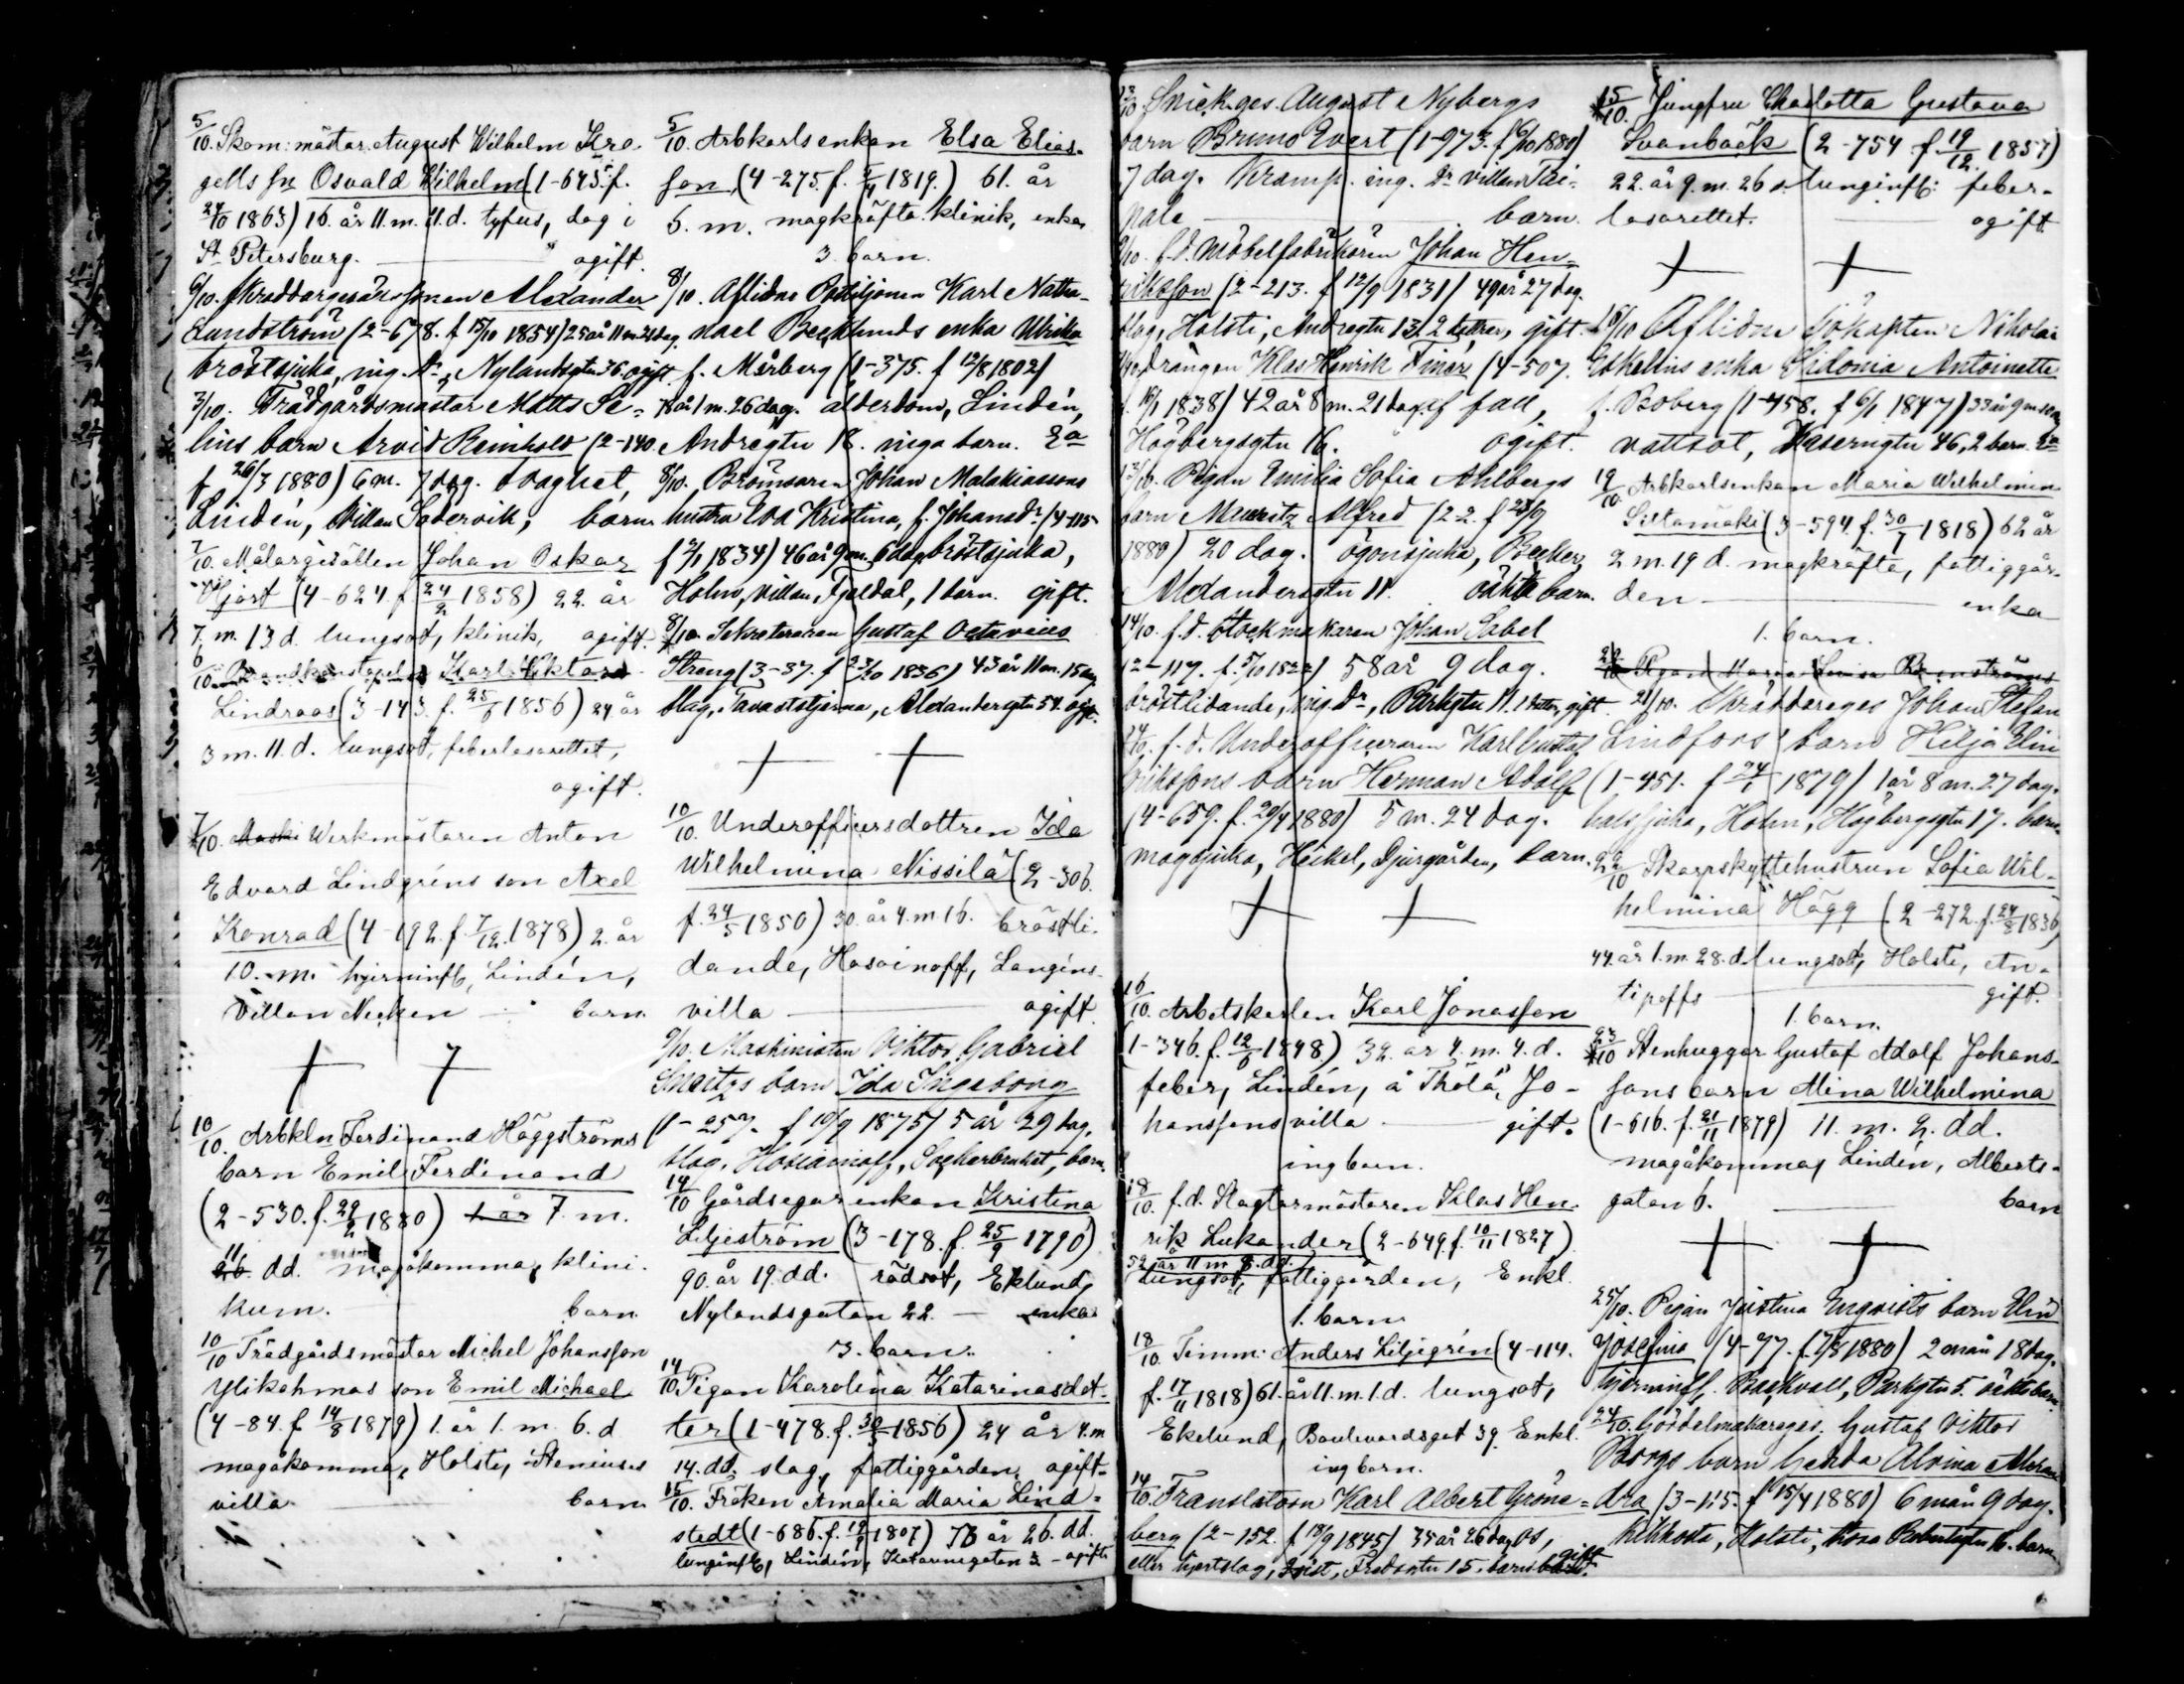 5/10. Skom: mästar. August Wilhelm Kro-
gells sn Osvald Wilhelm (1-645. f.
24/10 1863) 16. år 11. m. 11. d. tyfus, dog i
St Petersburg. ogift.
6/10. Skräddargesällen Jonan Alexander
Lundström (2-678. f 15/10 1854) 25 år 11 m 21 dag.
bröstsjuka, ing. Dr, Nylandsgtn 36. ogift.
3/10. Trädgårdsmästar Matts Se-
lins barn Arvid Reinhold (2-140.
f 26/3 1880) 6 m. 7 dag. svaghet,
Lindén, Villan Södervik, barn
7/10. Målargesällen Johan Oskar
Hjort (4-624. f 24/2 1858) 22. år
7. m. 13 d. lungsot, klinik, ogift.
6/10. Brandkonstapeln Karl Viktor
Lindroos (3-143. f. 25/6 1856) 24 år
3 m. 11. d. lungsot, feberlasarettet,
ogift.
7/10. Maski Werkmästaren Anton
Edvard Lindgréns son Axel
Konrad (4-192. f. 7/12. 1878) 2. år
10. m. hjerninfl, Lindén,
Villan Necken barn
10/10. Arbkln Ferdinand Häggströms
barn Emil Ferdinand
(2-530. f. 29/2 1880) 1 år 7. m.
11 26 dd. magåkomma, klini-
kum. barn
10/10 Trädgårdsmästar Michel Johansson
Ylikahmas son Emil Michael
(4-84. f 14/8 1879) 1. år 1. m. 6. d
magåkomma, Holsti, Steniuses
villa. barn
5/10. Arbkarlsenkan Elsa Elias-
son, (4-275. f. 5/4 1819.) 61. år
6. m. magkräfta klinik, enka
3. barn.
8/10. Aflidne Postiljonen Karl Natha-
nael Becklunds enka Ulrika
f. Mårberg (1-375. f 12/8 1802)
78 år 1 m. 26 dag. ålderdom, Lindén,
Andregtn 18. inga barn. Ea
8/10. Bromsaren Johan Malakiassons
hustru Eva Kristina, f. Johansdr (4-115
f 2/1 1834) 46 år 9 m. 6 dag bröstsjuka,
Holm, villan Fjeldal, 1 barn. gift.
8/10. Sekreteraren Gustaf Octavius
Strang (3-37. f 23/10 1836) 43 år 11 m. 15 dag
slag, Tavaststjerna, Alexandersgtn 54. ogift.
10/10. Underofficersdottren Ida
Wilhelmina Nissilä (2-306.
f. 24/5 1850) 30. år 4. m 16. bröstli-
dande, Hasoinoff, Langéns
villa ogift.
9/10. Maskinisten Viktor Gabriel
barn Ida Ingeborg
(1-257. f 10/9 1875) 5 år 29 dag,
slag, Sockerbruket, barn.
14/10 Gårdsegarenkan Kristina
Liljeström (3-178. f. 25/9 1790)
90. år 19. dd. rödsot, Eklund,
Nylandsgatan 22. enka
3. barn.
14/10. Pigan Karolina Katarinasdot-
ter (1-478. f. 30/5 1856) 24 år 4. m
14. dd. slag, fattiggården, ogift-
15/10. Fröken Amalia Maria Lind-
stedt (1-686. f. 19/9 1807) 73 år 26. dd.
lunginfl, Lindén, Katarinegatan 3 - ogift
13/10. Snick.ges. August Nybergs
barn Bruno Evert (1-973. f 6/10 1880)
7 dag. Kramp. ing. Dr villan Tai-
pale barn.
9/10. f.d. Möbelfabrikören Johan Hen-
riksson (2-213. f 12/9 1831) 49 år 27 dag.
slag, Holsti, Andregtn 13, 2 döttrar, gift.
drängen Klas Henrik Finér (4-507.
f. 18/1 1838) 42 år 8 m. 21 dag. af fall,
Högbergsgtn 16. ogift.
13/10. Pigan Emilia Sofia Ahlbergs
barn Mauritz Alfred (2-2. f 23/9
1880) 20 dag. ögonsjuka, Becker,
Alexandersgtn 11. oäkta barn.
14/10. f.d. Stockmakaren Johan Sabel
(2-117. f. 5/10 1822) 58 år 9 dag.
bröstlidande, ing. Dr, Parkgtn 11. 1 dotter, gift.
14/10. f.d. Underofficeraren Karl Gustaf
Erikssons barn Herman Adolf
(4-659. f. 20/4 1880) 5 m. 24 dag.
magsjuka, Heikel, Djurgården, barn.
16/10. Arbetskarlen Karl Jonasson
(1-346. f. 12/6 1848.) 32. år 4. m. 4. d.
feber, Lindén, å Thölö, Jo-
hanssons villa gift.
ing barn.
18/10. f.d. Slagtarmästaren Klas Hen-
rik Lukander (2-649. f. 10/11 1827)
52. år 11 m 8. dd.
lungsot, fattiggården, Enkl.
1. barn
18/10. Timm: Anders Liljegrén (4-114.
f. 17/11 1818) 61. år 11. m. 1. d. lungsot,
Ekelund, Boulevardsgat 39. Enkl.
ing barn.
14/10. Translatorn Karl Albert Gröne-
berg (2-152. f 18/9 1845) 35 år 26 dag os,
eller hjertslag, Fredsgtn 15. barnlös. gift
15/10. Jungfru Charlotta Gustava
Svanbäck (2-754 f. 19/12. 1857)
22. år 9. m. 26 d. lunginfl: feber-
lasarettet. ogift
16/10 Aflidne Sjökapten Nikolai
Eskelins enka Sidonia Antoinette
f. Boberg (1-458. f 6/1 1847) 33 år 9 m
vattsot, Kaserngtn 46, 2 barn. Ea
19/10. Arbkarlsenkan Maria Wilhelmin
Siltamäki (3-594. f. 30/7 1818) 62 år
2 m. 19 d. magkräfta, fattiggår-
den enka
1. barn.
Pigan Maria Lovisa
21/10. Skräddareges Johan Stefan
Lindfors' barn Hilja Elin
(1-451. f 24/1 1879) 1 år 8 m. 27 dag.
halssjuka, Holm, Högbergsgtn 17. barn.
22/10 Skarpskyttehustrun Sofia Wil-
helmina Hägg (2-272. f. 24/8 1836)
44. år 1. m. 28. d. lungsot, Holsti, An-
tipoffs gift.
1. barn.
23/10 Stenhuggar Gustaf Adolf Johans-
sons barn Alina Wilhelmina
(1-616. f. 21/11 1879) 11. m. 2. dd.
magåkomma, Lindén, Alberts-
gatan 6. barn
25/10. Pigan Justina Enqvists barn Elin
Josefina (4-77. f. 7/8 1880) 2 mån 18 dag.
hjerninfl. Backvall, Parkgtn 5. oäkta barn.
24/10. Gördelmakareges. Gustaf Viktor
Borgs barn Gerda Alvina Alexan
dra (3-115. f 15/4 1880) 6 mån 9 dag.
kikhosta, Holsti, Robertsgtn 16. barn